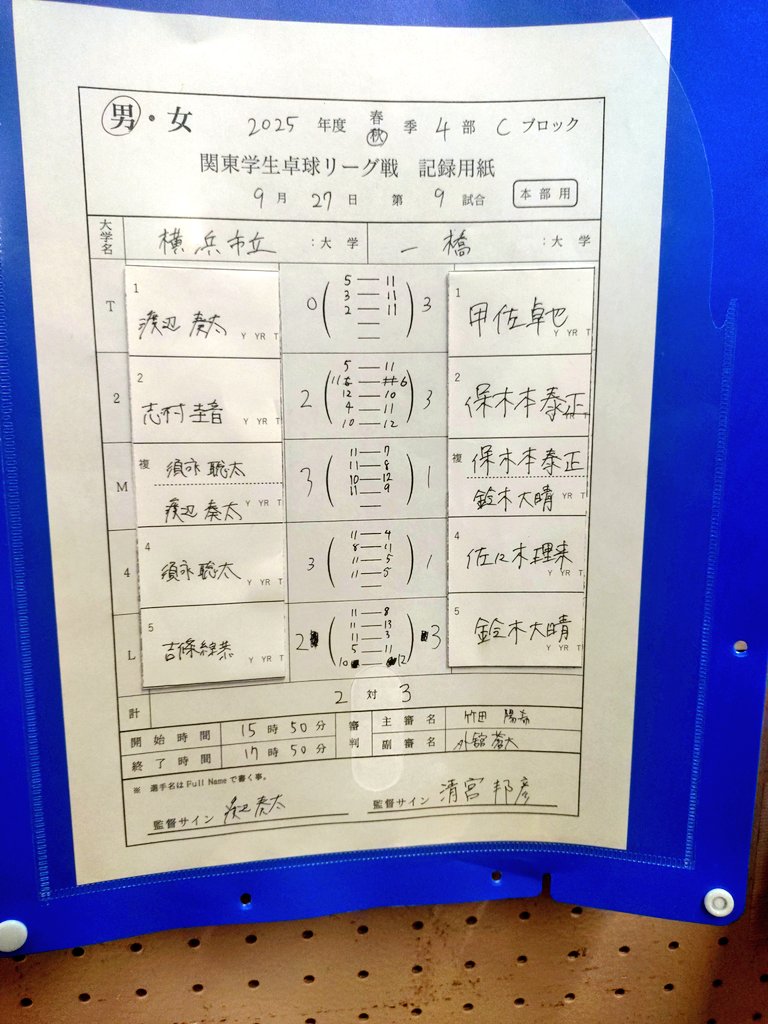 男・女 2025 年度 春 秋 季 4 部 C ブロック
関東学生卓球リーグ戦 記録用紙
9 月 27 日 第 9 試合 本部用
大学名 横浜市立 :大学 一橋 :大学
T 1 渡辺 奏太 Y YR T 0 3 1 甲佐卓也 Y YR T
5 — 11
3 — 11
2 — 11
2 2 志村 圭音 Y YR T 2 3 2 保木本泰正 YR T
5 — 11
11 — 6
12 — 10
4 — 11
10 — 12
M 複 須永 聡太 3 1 複 保木本泰正
渡辺 奏太 Y YR T 鈴木大晴 YR T
11 — 7
11 — 8
10 — 12
11 — 9
4 4 須永 聡太 Y YR T 3 1 4 佐々木理来 Y YR T
11 — 4
8 — 11
11 — 5
11 — 5
L 5 吉條 Y YR T 2 3 5 鈴木大晴 Y YR T
11 — 8
11 — 13
11 — 3
5 — 11
10 — 12
計 2 対 3
開始時間 15 時 50 分 審判 主審名 竹田
終了時間 17 時 50 分 副審名
※ 選手名はFull Nameで書く事。
監督サイン 渡辺奏太 監督サイン 清宮 邦彦